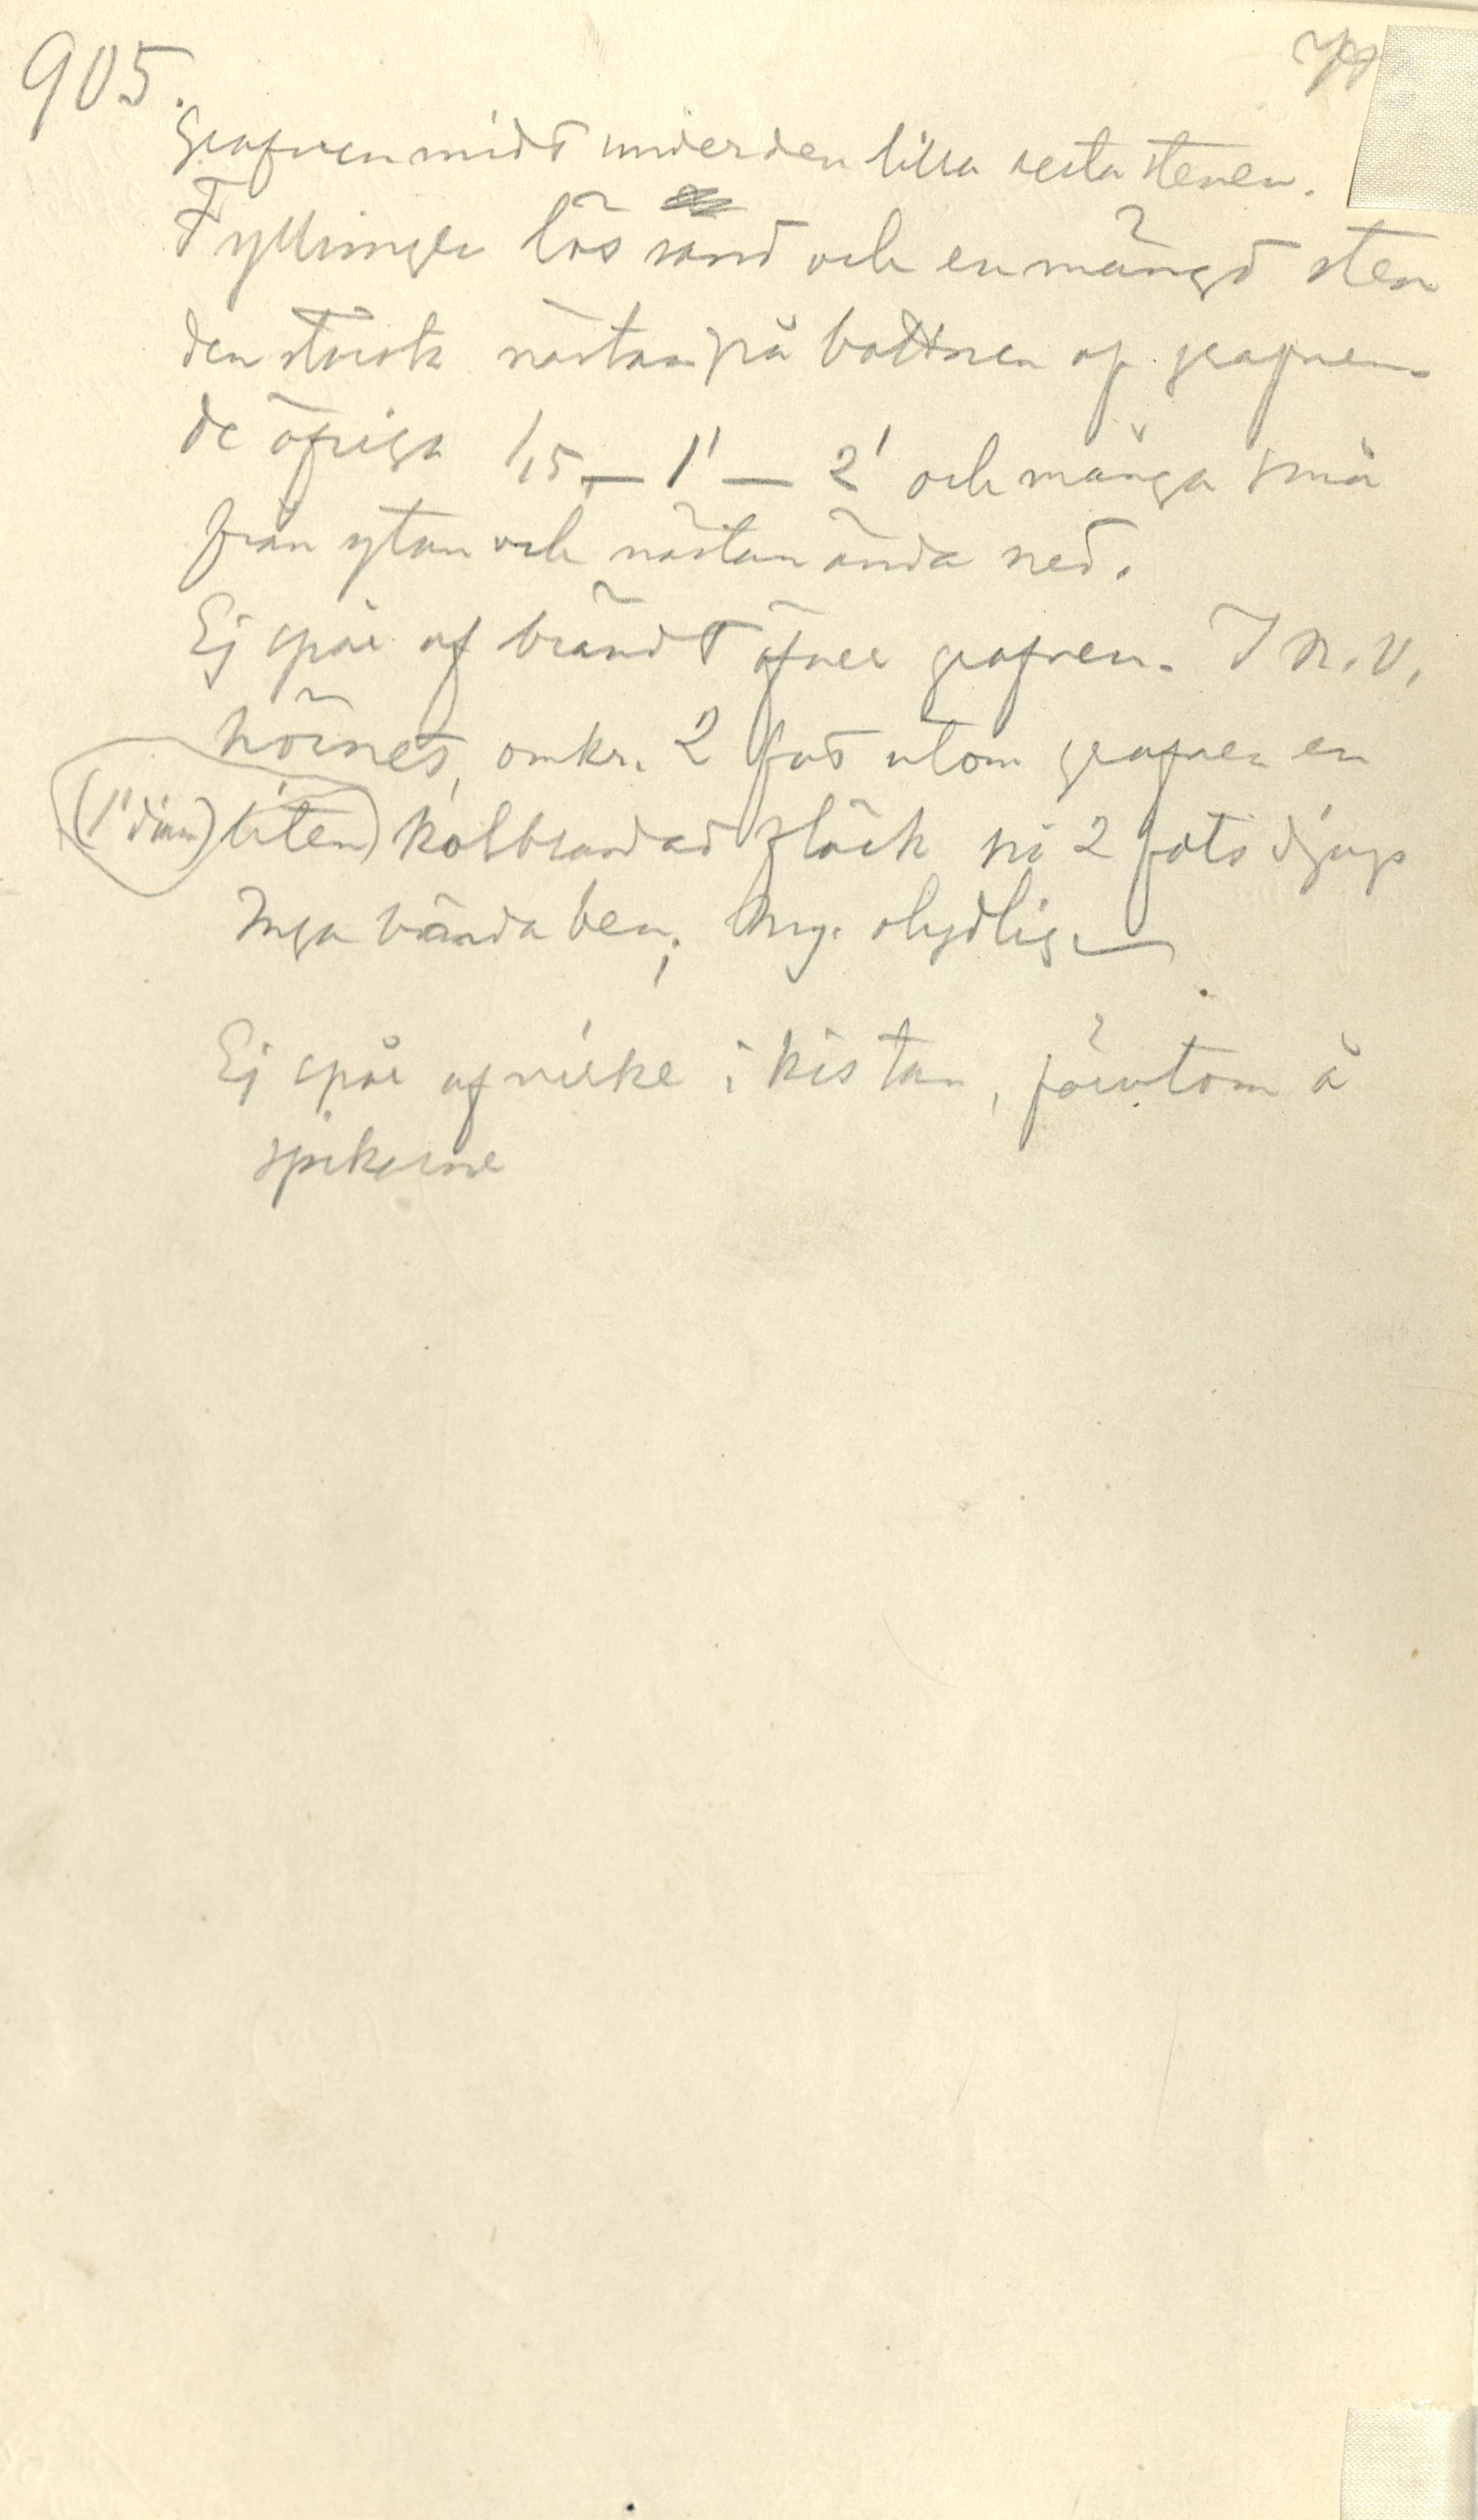 905.
Grafven midt under den lilla resta stenen.
Fyllningen lös sand och en mängd sten
den största nästan på bottnen af grafven.
de öfriga 1,5 – 1' – 2' och många små
från ytan och nästan ända ned.
Ej spår af brändt öfver grafven. I N.V.
hörnet, omkr. 2 fot utom grafven en
(1' diam) liten) kolblandad fläck på 2 fots djup
Inga brända ben; Mng. otydlig.
Ej spår af virke i kistan, förutom å
spikarne